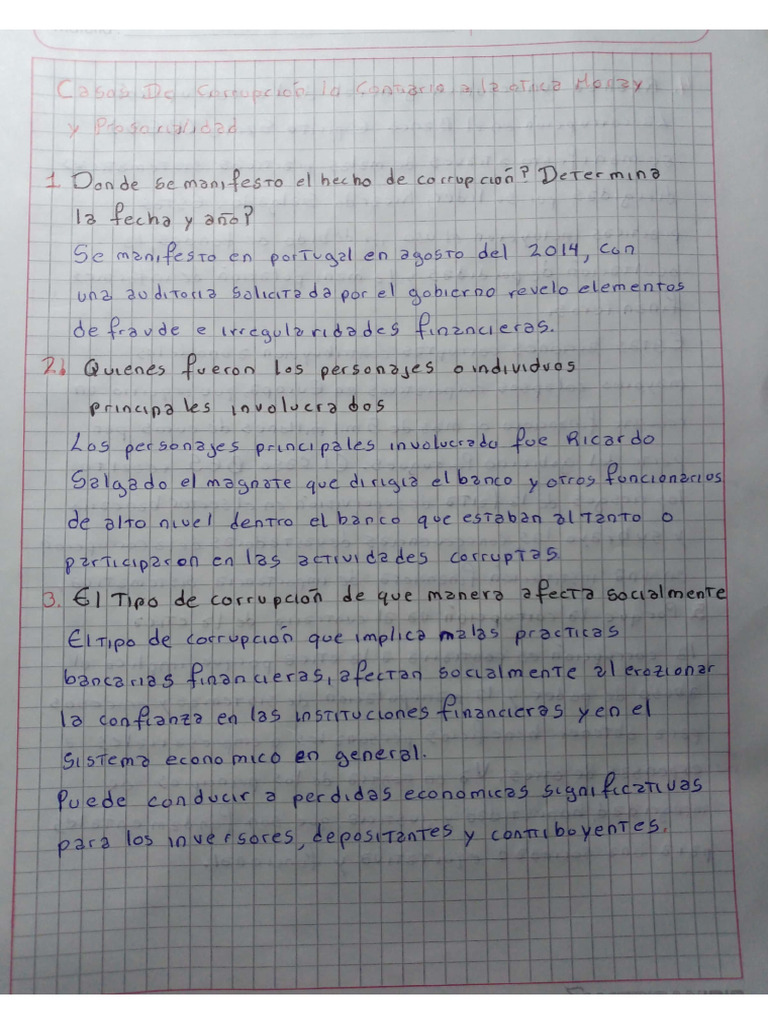 Casos De Corrupción lo Contrario a la etica Moral y
y Prosocialidad
1 Donde se manifesto el hecho de corrupción? Determina
la fecha y año?
Se manifesto en portugal en agosto del 2014, con
una auditoria solicitada por el gobierno revelo elementos
de fraude e irregularidades financieras.
2. Quienes fueron los personajes o individuos
principales involucrados
Los personajes principales involucrado fue Ricardo
Salgado el magnate que dirigia el banco y otros funcionarios
de alto nivel dentro el banco que estaban al tanto o
participaron en las actividades corruptas
3. El Tipo de corrupción de que manera afecta socialmente
El tipo de corrupción que implica malas practicas
bancarias financieras, afectan socialmente al erozionar
la confianza en las instituciones financieras y en el
sistema economico en general.
Puede conducir a perdidas economicas significativas
para los inversores, depositantes y contriboyentes.